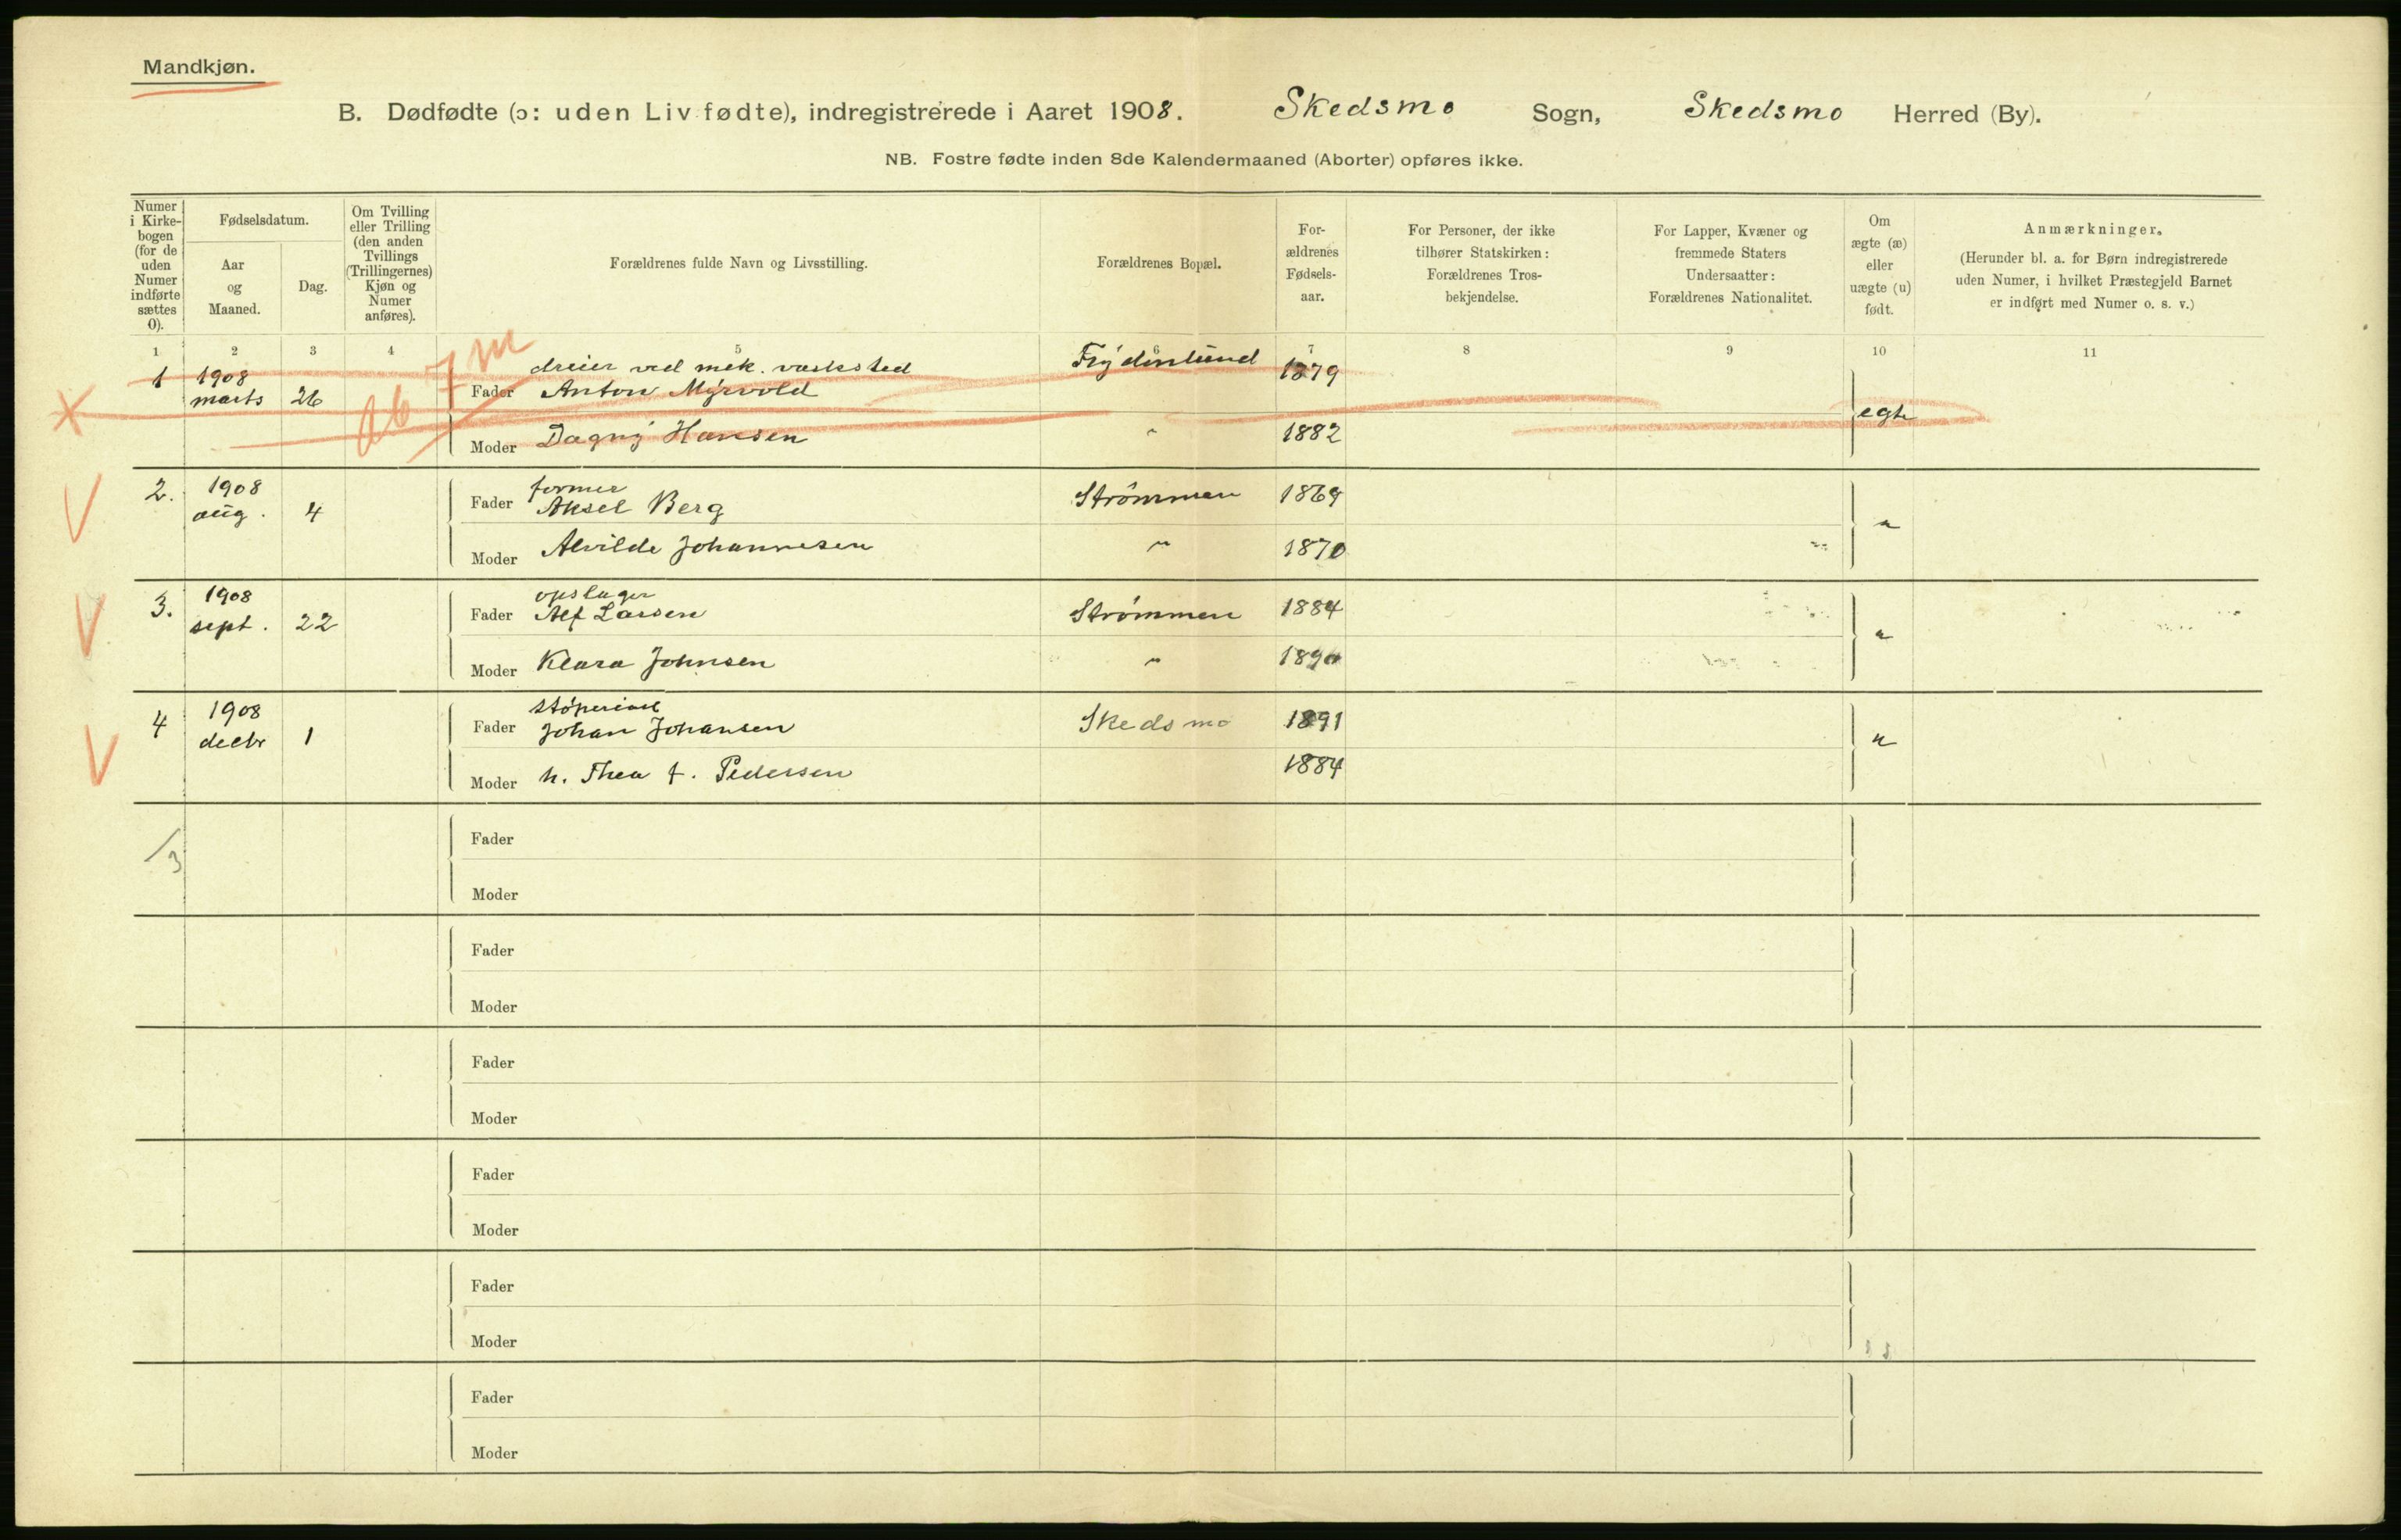 Mandkjøn.
B. Dødfødte (ɔ: uden Liv fødte), indregistrerede i Aaret 1908. Skedsmo Sogn, Skedsmo Herred (By).
NB. Fostre fødte inden 8de Kalendermaaned (Aborter) opføres ikke.
Numer i Kirkebogen (for de uden Numer indførte sættes 0).
Fødselsdatum.
Aar og Maaned.
Dag.
Om Tvilling eller Trilling (den anden Tvillings (Trillingernes) Kjøn og Numer anføres).
Forældrenes fulde Navn og Livsstilling.
Forældrenes Bopæl.
For-
ældrenes
Fødsels-
aar.
For Personer, der ikke
tilhører Statskirken:
Forældrenes Tros-
bekjendelse.
For Lapper, Kvæner og
fremmede Staters
Undersaatter:
Forældrenes Nationalitet.
Om
ægte (æ)
eller
uægte (u)
født.
Anmærkninger.
(Herunder bl. a. for Børn indregistrerede
uden Numer, i hvilket Præstegjeld Barnet
er indført med Numer o. s. v.)
1 2 3 4 5 6 7 8 9 10 11
7 m
ab
dreier ved mek. værksted
1 1908 marts 26 Fader Anton Myrvold Frydenlund 1879 egte
Moder Dagny Hansen " 1882
former
2. 1908 aug. 4 Fader Aksel Berg Strömmen 1869 "
Moder Alvilde Johannesen " 1870
opslager
3. 1908 sept. 22 Fader Alf Larsen Strömmen 1884 "
Moder Klara Johnsen " 1890
4 1908 decbr 1 Fader Johan Johansen Skedsmo 1891 "
Moder h. Thea f. Pedersen 1884
/3
Fader
Moder
Fader
Moder
Fader
Moder
Fader
Moder
Fader
Moder
Fader
Moder